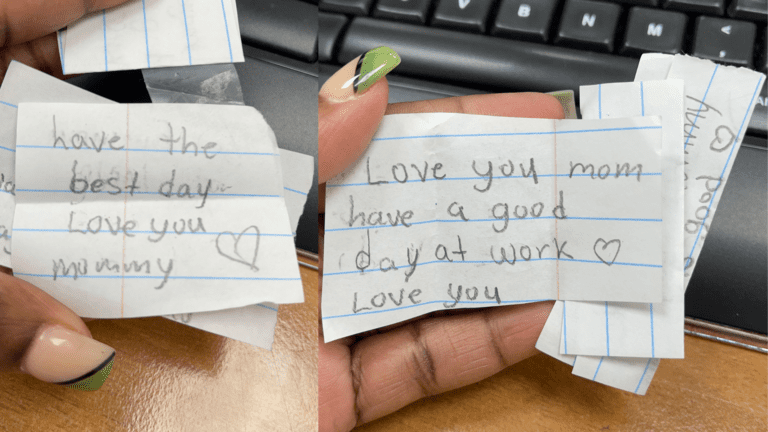 have the
best day
Love you
mommy
V
B
N
M
<
,
Love you mom
have a good
day at work
Love you